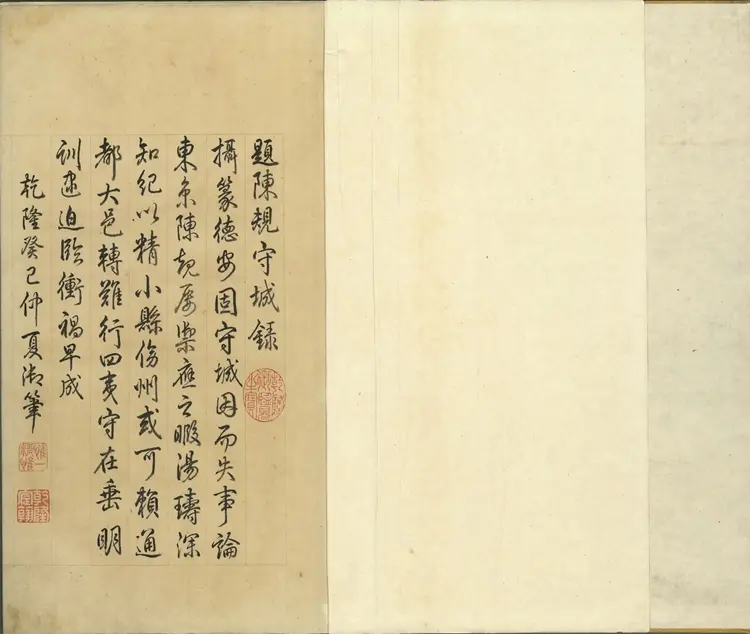 題陳規守城錄
攝篆德安固守城因而失事論
東京陳規屢禦應之暇湯璹深
知紀以精小縣傍州或可賴通
都大邑轉難行四夷守在垂明
訓逮迫臨衝禍早成
乾隆癸巳仲夏御筆